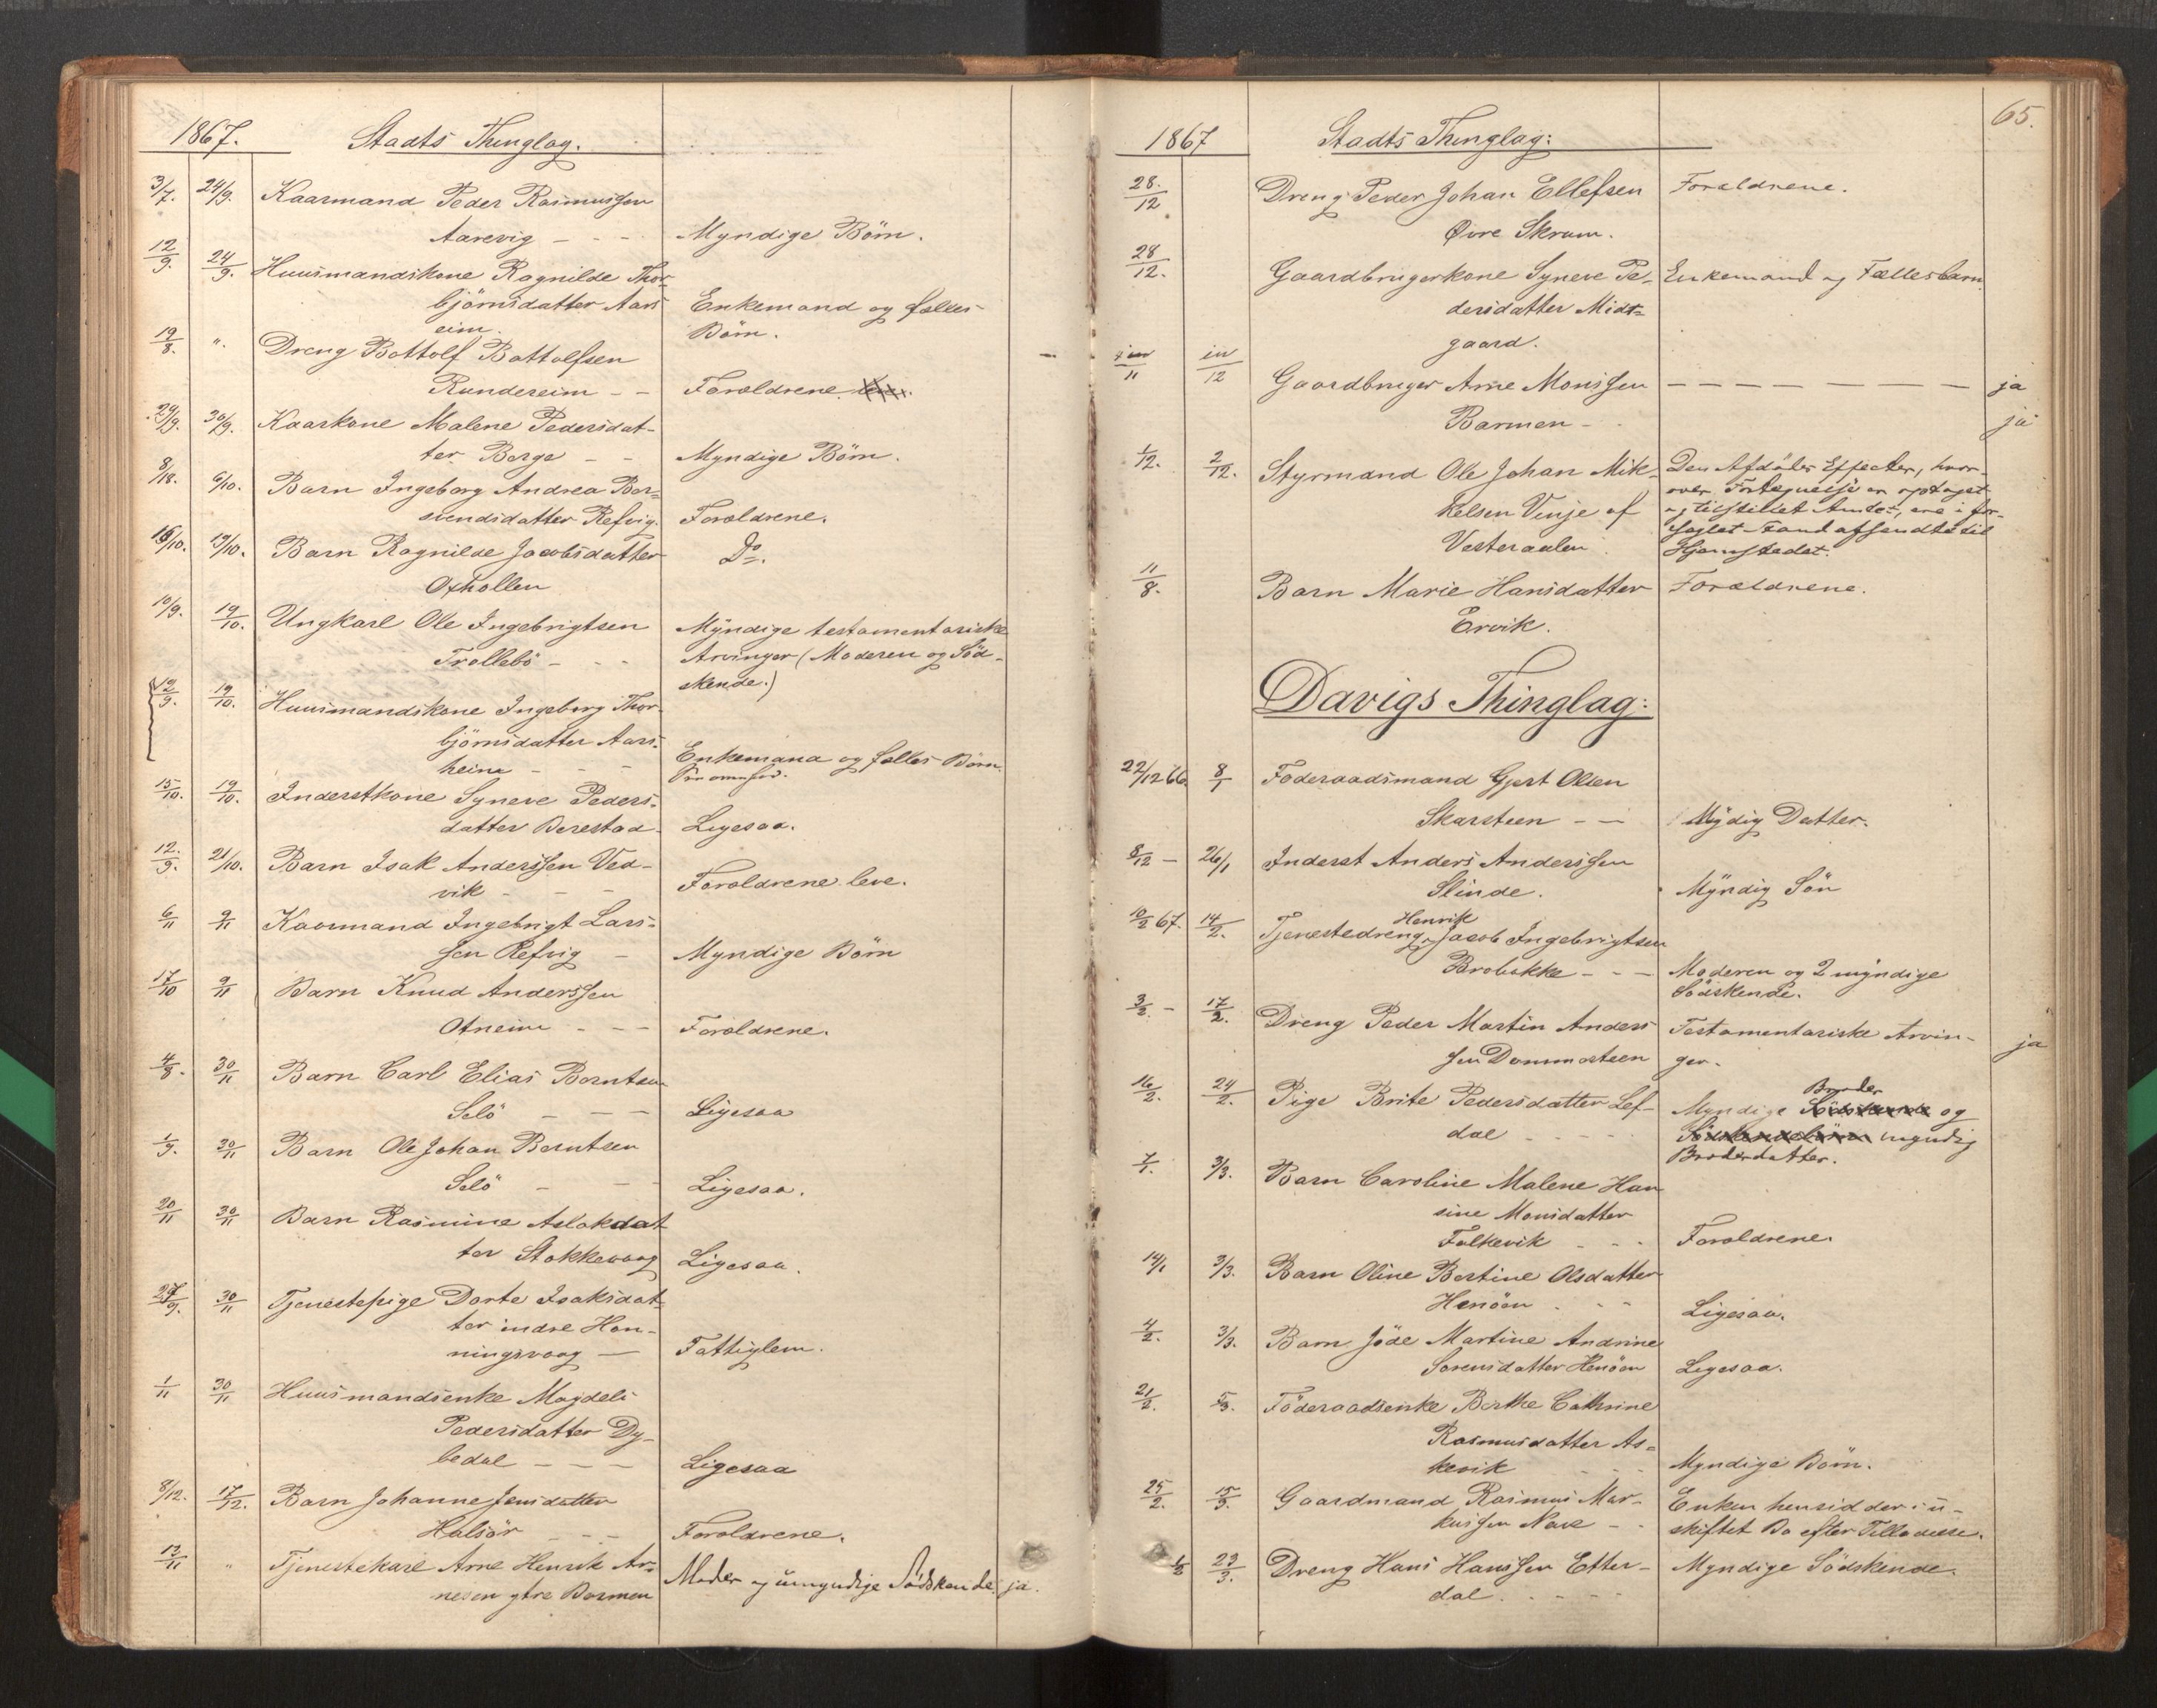 1867. Stadts Thinglag.
3/7. 24/9. Kaarmand Peder Rasmussen
Aarevig - - - Myndige Börn.
12/9. 24/9. Huusmandskone Ragnilde Thor-
björnsdatter Aars Enkemand og fælles-
eim. Börn.
19/8. ". Dreng Bottolf Bottolfsen
Rundereim - - Forældrene
29/9. 30/9. Kaarkone Malene Pedersdat-
ter Berge - - Myndige Börn.
8/18. 6/10. Barn Ingeborg Andrea Ber-
svendsdatter Refvig. Forældrene.
16/10. 19/10. Barn Ragnilde Jacobsdatter Do.
Oxhollen
10/9. 19/10. Ungkarl Ole Ingebrigtsen Myndige testamentariske
Trollebö - - - Arvinger (Moderen og Söd-
skende.)
12/9. 19/10. Huusmandskone Ingeborg Thor-
björnsdatter Aars-
heim - - - Enkemand og fælles Börn.
15/10. 19/10. Inderstkone Syneve Peders-
datter Berestad. Ligesaa.
12./9. 21/10. Barn Isak Anderssen Ved-
vik - - - Forældrene leve.
6/11 9/11 Kaarmand Ingebrigt Lars-
sen Refvig - Myndige Börn
17/10 9/11 Barn Knud Anderssen
Otneim - - - Forældrene.
4/8. 30/11 Barn Carl Elias Berntsen
Selö - - - Ligesaa
1/9. 30/11 Barn Ole Johan Berntsen
Selö - - Ligesaa.
20/11 30/11 Barn Rasmine Aslakdat
ter Stokkevaag Ligesaa.
27/9. 30/11 Tjenestepige Dorte Isaksdat-
ter indre Hon-
ningsvaag - Fattiglem.
1/11 30/11 Huusmandsenke Magdeli
Pedersdatter Dy-
bedal - - - Ligesaa
8/12. 17/12. Barn Johanne Jensdatter
Halsör - - - Forældrene.
13/11 " Tjenestekarl Arne Henrik Ar-
nesen ytre Barmen Moder og umyndige Södskende. ja.
65.
1867 Stadts Thinglag:
28./12 Dreng Peder Johan Ellefsen Forældrene.
Övre Skram.
28/12. Gaardbrugerkone Syneve Pe- Enkemand og Fællesbarn.
dersdatter Midt-
gaard.
11 12 Gaardbruger Arne Monssen - - - - - - - - ja
Barmen - . ja
1/12. 2/12. Styrmand Ole Johan Mik- Den Afdödes Effecter, hvor-
kelsen Vinje af over Fortegnelse er optaget
Vesteraalen. og tilstillet Amtet, ere i for-
seglet Tand afsendte til
Hjemstedet.
11/8. Barn Marie Hansdatter Forældrene.
Ervik.
Davigs Thinglag:
22/12 66. 8/1 Föderaadsmand Gjert Olsen
Skarsteen - - Myndig Datter.
8/12 - 26/1 Inderst Anders Anderssen
Slinde. Myndig Sön
10/2 67. 14/2. Tjenestedreng Henrik Jacob Ingebrigtsen
Brobakke - - - Moderen og 2 myndige
Södskende.
3/2. - 17/2. Dreng Peder Martin Anders Testamentariske Arvin- ja
sen Dommasteen ger.
16/2. 24/2. Pige Brite Pedersdatter Lef- Myndige Broder og
dal - - - - myndig
Broderdatter.
7/1. 3/3. Barn Caroline Malene Han
sine Monsdatter
Falkevik - - - Forældrene.
14/1 3/3. Barn Oline Bertine Olsdatter
Henöen . - - Ligesaa.
4/2. 3/3. Barn Jöde Martine Andrine
Sorensdatter Henöen Ligesaa.
21/2. 5/3. Föderaadsenke Berthe Cathrine
Rasmusdatter As-
kevik - - - Myndige Börn.
25/2. 15/3. Gaardmand Rasmus Mar- Enken hensidder i u-
kussen Nave - - skiftet Bo efter Tilladelse.
23/3. Dreng Hans Hanssen Etter- Myndige Södskende.
dal. - - - -